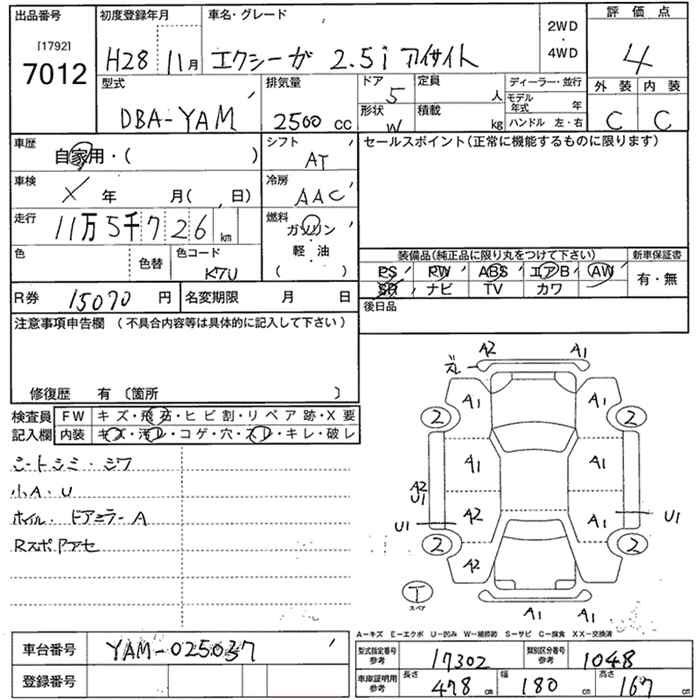 出品番号 初度登録年月 車名・グレード 2WD ・ 4WD 評価点
[1792]
7012 H28 11月 エクシーガ 2.5i アイサイト 4
型式 排気量 ドア 定員 ディーラー・並行 外装 内装
DBA-YAM 2500 cc 5 人 モデル年式 年 C C
形状 積載 ハンドル 左・右
W kg
車歴 シフト セールスポイント(正常に機能するものに限ります)
自家用・( ) AT
車検 冷房
X 年 月( 、日) AAC
走行 燃料
11万5千726 km ガソリン
軽・油
( )
色 色替 色コード 装備品(純正品に限り丸をつけて下さい) 新車保証書
KTU PS PW ABS エアB AW 有・無
SR ナビ TV カワ
R券 15070 円 名変期限 月 日 後日品
注意事項申告欄 (不具合内容等は具体的に記入して下さい)
修復歴 有 〔箇所 〕
検査員 FW キズ・飛石・ヒビ割・リペア跡・X要
記入欄 内装 キズ・汚レ・コゲ・穴・スレ・キレ・破レ
シートシミ・シワ
小A・U
ホイル・ドアミラーA
Rスポアセ
ズレ A2 A1
A1 A1
2 2
A1 A1
A2
U1
U1 A2 A1 U1
2 2
A2
T
スペア
A1 A1
A-キズ E-エクボ U-凹み W-補修跡 S-サビ C-腐食 XX-交換済
車台番号 YAM-025037
登録番号
型式指定番号参考 17302 類別区分番号参考 1048
車庫証明用参考 長さ 478 cm 幅 180 cm 高さ 167 cm